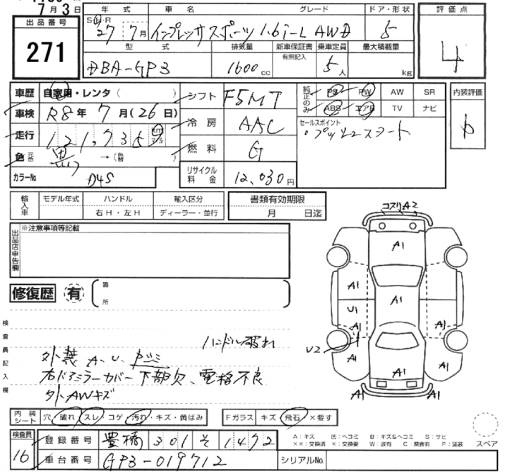 7月3日
出品番号
271
年式 車名 グレード ドア・形状 評価点
SH 27年7月 インプレッサスポーツ 1.6i-L AWD 5
4
型式 排気量 新車保証書 乗車定員 最大積載量
有無記入
DBA-GP3 1600cc 5人 kg
車歴 自家用・レンタ( )
シフト F5MT
純正のみ PS PW AW SR
ABS エアB TV ナビ
内装評価
車検 R8年7月(26日)
冷房 AAC
セールスポイント
・プッシュスタート
走行 121,735
燃料 G
色 元色 黒 →(替 )
カラーNo D4S
リサイクル料金 12,030円
輸入車 モデル年式 ハンドル 輸入区分
右H・左H ディーラー・並行
書類有効期限
月 日迄
コスリA2
出品店申告欄
※注意事項等記載
A1
A1 A1
A1 A1
U1 A1
A1
修復歴 有 箇所
U2
検査員記入欄
ハンドル
外装 A、U、
右ドアミラーカバー下部欠、電格不良
外AWキズ
内装シート 穴 破れ スレ コゲ 汚れ・キズ・黄ばみ
Fガラス キズ 飛石 ×要す
スペア
検査員
16
登録番号 豊橋 301 そ 1492
車台番号 GP3-019712
シリアルNo.